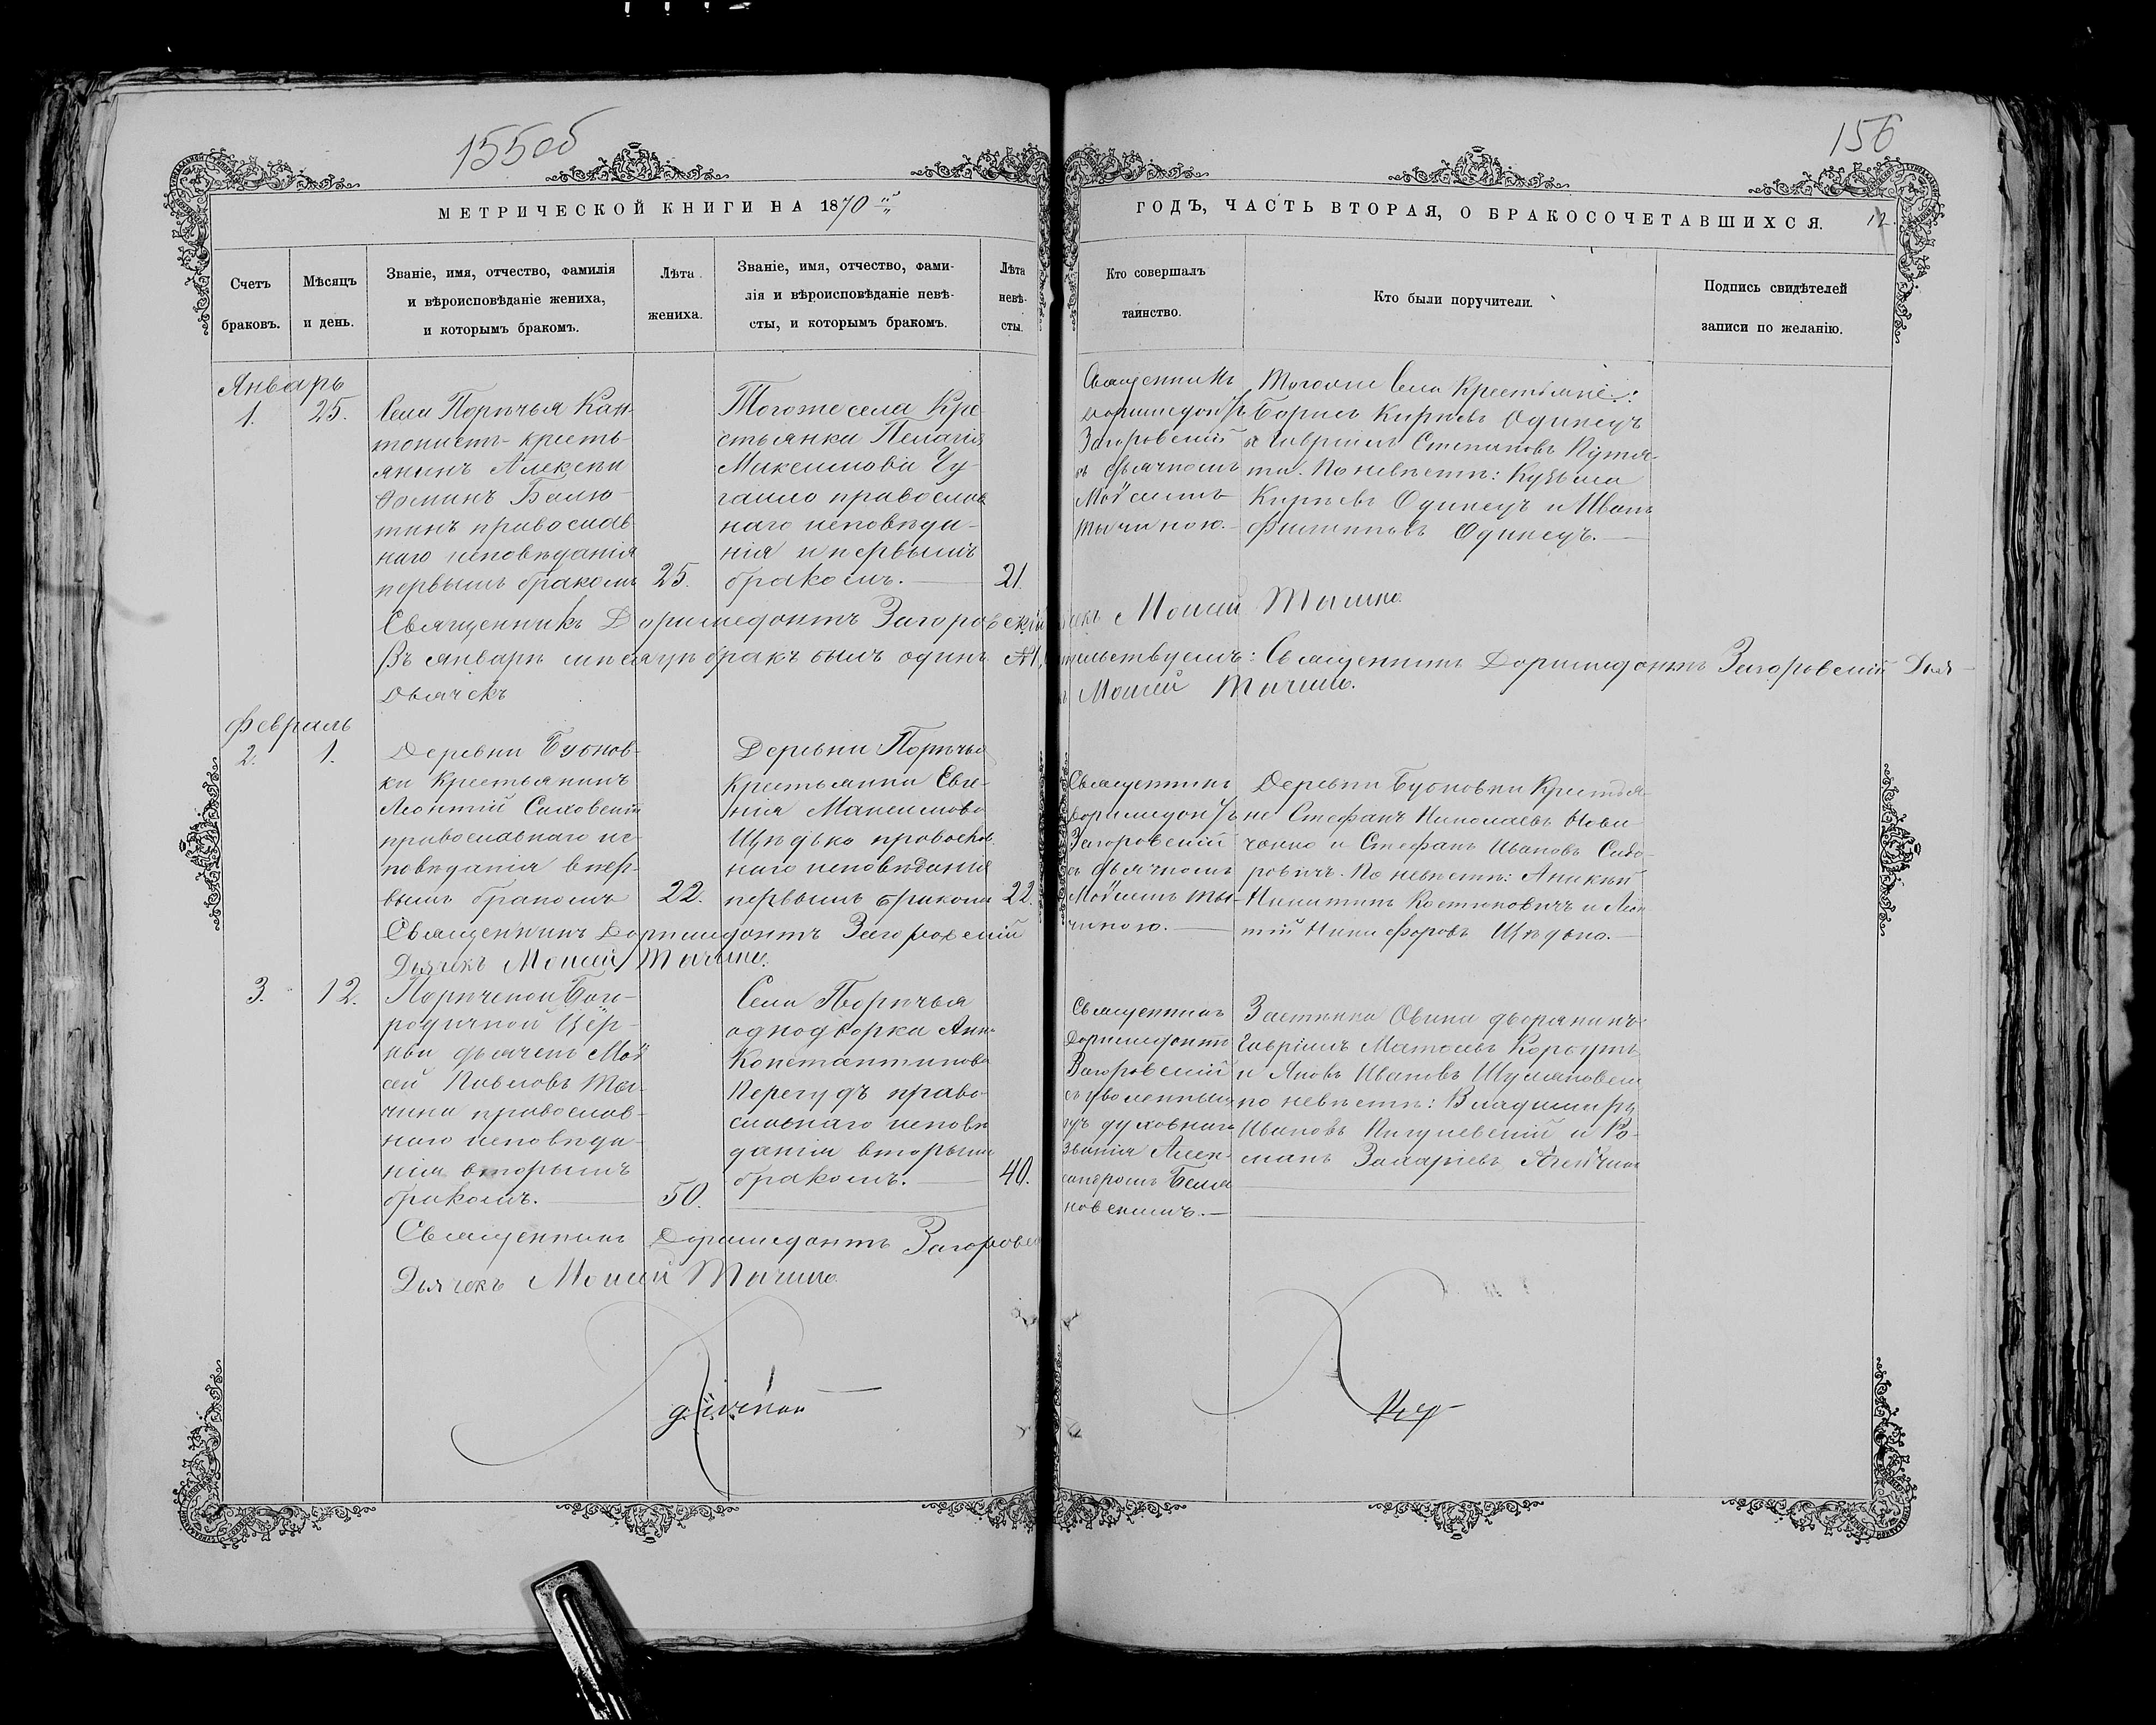 155об
156
МЕТРИЧЕСКОЙ КНИГИ НА 1870 й
ГОДЪ, ЧАСТЬ ВТОРАЯ, О БРАКОСОЧЕТАВШИХСЯ.
12.
Счетъ
браковъ.
Мѣсяцъ
и день.
Званіе, имя, отчество, фамилія
и вѣроисповѣданіе жениха,
и которымъ бракомъ.
Лѣта
жениха.
Званіе, имя, отчество, фами-
лія и вѣроисповѣданіе невѣ-
сты, и которымъ бракомъ.
Лѣта
невѣ-
сты.
Кто совершалъ
таинство.
Кто были поручители.
Подпись свидѣтелей
записи по желанію.
Январь
1.
25.
Села Порѣчья Кан-
тонистъ-кресть-
янинъ Алексѣй
Ѳоминъ
православ
наго исповѣданія
первымъ бракомъ
25.
Тогоже села Кре-
стьянка Пелагія
Максимова Чу-
гаило православ
наго исповѣда-
нія и первымъ
бракомъ.
21.
Священникъ
Доримедонтъ
Загоровскій
съ дьячкомъ
Мойсеемъ
Тычиною.
Тогоже села крестьяне:
Борисъ Кирѣевъ Одинецъ
и Гавріилъ Степановъ Путя-
та. По невѣстѣ: Кузьма
Кирѣевъ Одинецъ и Иванъ
Филипповъ Одинецъ.
Священникъ Доримедонтъ Загоровскій
Моисей Тычина.
Въ январѣ мѣсяцѣ бракъ былъ одинъ №1,
тельствуемъ: Священникъ Доримедонтъ Загоровскій Дья-
Дьячекъ
Моисей Тычина.
Февраль
2.
1.
Деревни Буснов-
ки Крестьянинъ
Леонтій
православнаго ис-
повѣданія в пер-
вымъ бракомъ
22.
Деревни Порѣчья
Крестьянка Евге-
нія Максимова
Щѣдько православ
наго исповѣданія
первымъ бракомъ
22.
Священникъ
Доримедонтъ
Загоровскій
съ дьячкомъ
Мойсеемъ Ты-
чиною.
Деревни Бусновки Крестья-
не Стефанъ Николаевъ
и Стефанъ Ивановъ Сидо-
ровичъ. По невѣстѣ: Аникѣй
Никитинъ Костюковичъ и Леон
тій Никифоровъ Щѣдько.
Священникъ Доримедонтъ Загоровскій
Дьячекъ Моисей Тычина.
3.
12.
Порѣчской Бого-
родичной Цер-
кви дьячекъ Мой
сей Павловъ Ты-
чина православ-
наго исповѣда-
нія вторымъ
бракомъ.
50.
Села Порѣчья
однодворка Анна
Константинова
Перегудъ право-
славнаго исповѣ
данія вторымъ
бракомъ.
40.
Священникъ
Доримедонтъ
Загоровскій
съ уволеннымъ
изъ духовнаго
званія Алек-
сандромъ Беля
новскимъ.
Застѣнка Овина дворянинъ:
Гавріилъ Матвѣевъ
и Яковъ Ивановъ
по невѣстѣ: Владиміръ
Ивановъ и Ро-
манъ Захаріевъ
Священникъ Доримедонтъ Загоровскій
Дьячекъ Моисей Тычина.